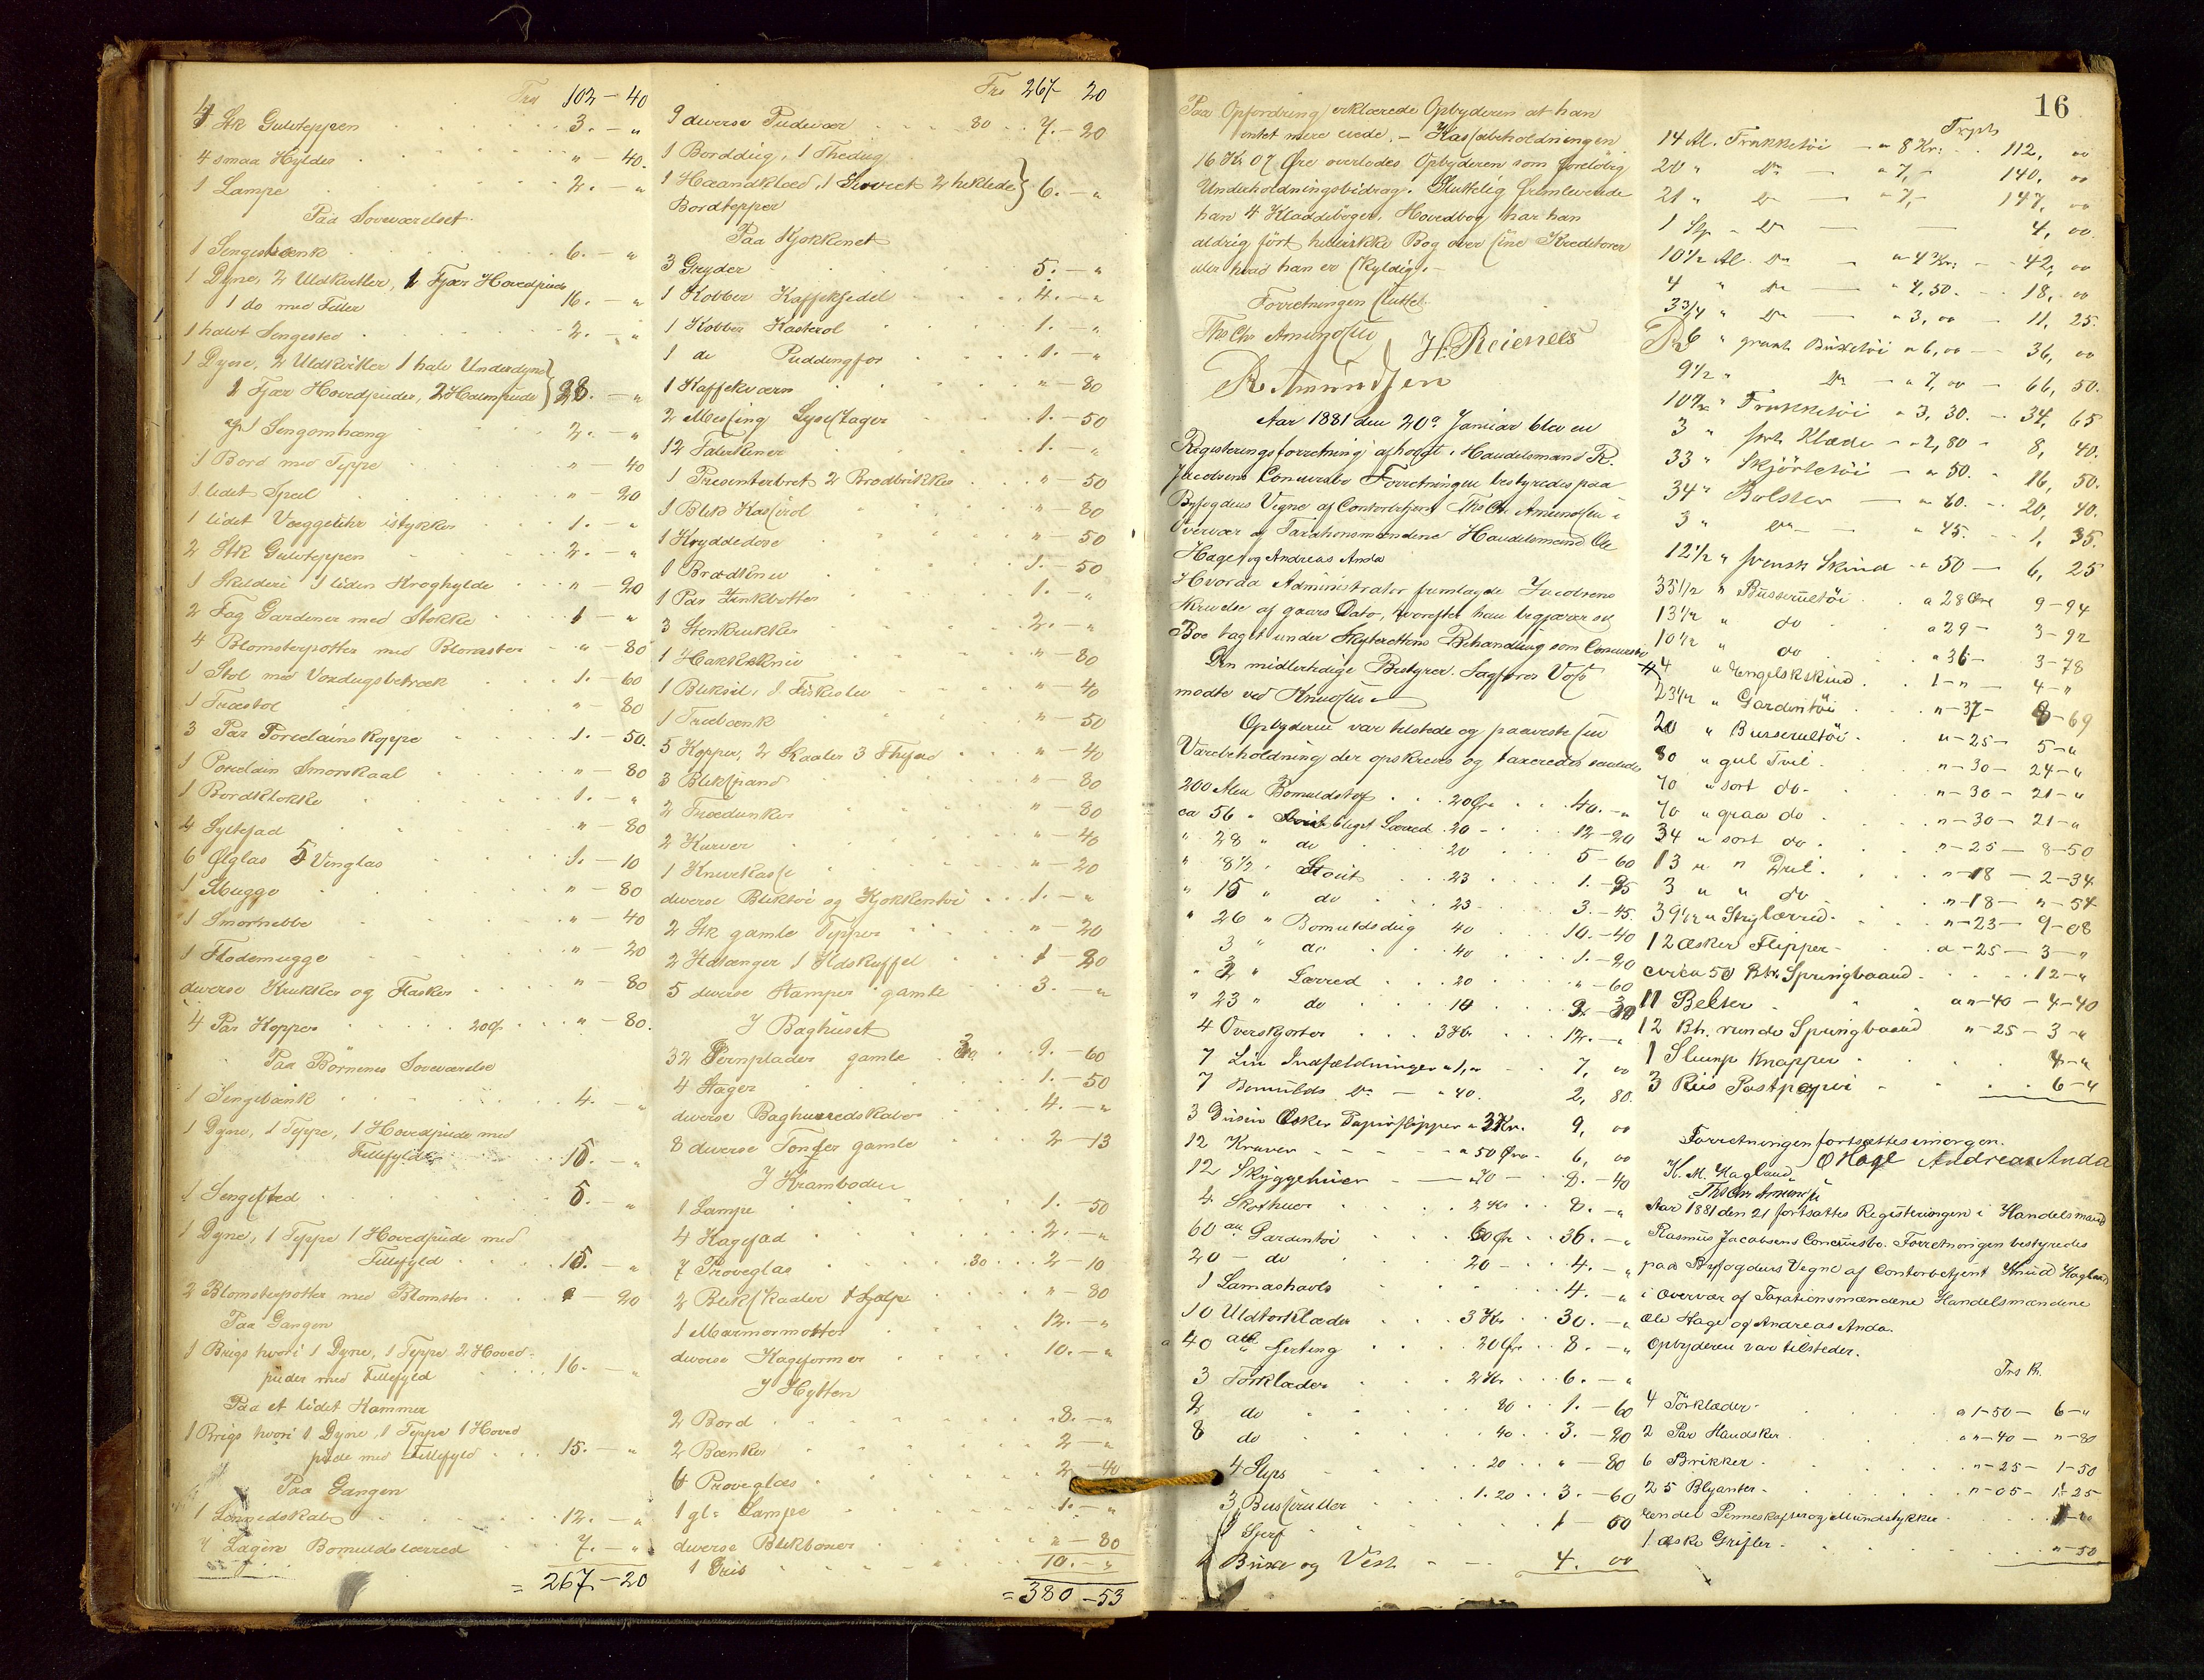 Trsp 102 - 40
4 Stk Gulvteppen 3. - "
4 smaa Hylder " - 40.
1 Lampe 2. - "
Paa Soveværelset.
1 Sengebænk 6. - "
1 Dyne, 2 Uldkvitler, 1 Fjær Hovedpude
1 do med Filler 16. - "
1 halvt Sengested 2. - "
1 Dyne, 2 Uldkvitler 1 halv Underdyne
2 Fjær Hovedpuder, 2 Halmpude } 28. - "
1 Sengomhæng 2. - "
1 Bord med Teppe " - 40
1 lidet Speil " - 20
1 lidet Væggeuhr istykker 1. - "
2 Stk Gulvteppen 2. - "
1 Skilderi 1 liden Kroghylde " - 20
2 Fag Gardener med Stokke 1 - "
4 Blomsterpotter med Blomster " - 80
1 Stol med Voxdugsbetræk 1. - 60
1 Træstol " - 80
3 Par Porcelains Koppe 1. - 50.
1 Porcelain Smørskaal " - 80
1 Bordklokke 1. - "
4 Syltefad " - 80
6 Ølglas 5 Vinglas 1. - 10
1 Mugge " - 80
1 Smørnebbe " - 40
1 Flødemugge " - 20
diverse Krukker og Flasker " - 80
4 Par Kopper 20 Ø. " - 80.
Paa Börnenes Soveværelse
1 Sengebænk 4. - "
1 Dyne, 1 Teppe, 1 Hovedpude med
Fillefyld 15. - "
1 Sengested 5. - "
1 Dyne, 1 Teppe 1 Hovedpude med
Fillefyld 15. - "
2 Blomsterpotter med Blomster " - 20
Paa Gangen
1 Brigs hvori 1 Dyne, 1 Teppe 2 Hoved-
puder med Fillefyld 16. - "
Paa et lidet Kammer
1 Brigs hvori 1 Dyne, 1 Teppe 1 Hoved
pude med Fillefyld 15. - "
Paa Gangen
1 Linnedskab 12. - "
7 Lagen Bomuldslærred 7. - "
= 267 - 20
Trs 267 - 20
9 diverse Pudevær 80 7. - 20
1 Borddug, 1 Thedug
1 Haandklæd, 1 Serviet 2 heklede } 6. - "
Bordtepper
Paa Kjøkkenet
3 Gryder 5. - "
1 Kobber Kaffekjedel 4. - "
1 Kobber Kasterol 1. - "
1 do Puddingfor 1. - "
1 Kaffekværn " - 80
2 Messing Lysestager 1. - 50
12 Talerkener 1. - "
1 Presenterbret 2 Brødbrikker " - 50
1 Blik Kasserol " - 80
1 Kryddedose " - 50
1 Brødkniv 1. - 50
1 Par Zinkbøtter 1. - "
3 Stenkrukker 2. - "
1 Hakkekniv " - 80
1 Bliksil, 1 Fiskeslev " - 40
1 Træbænk " - 50
5 Kopper, 2 Skaaler 3 Thefad " - 40
3 Blikspand " - 80
2 Trædunker " - 80
2 Kurver " - 40
1 Knivekasse " - 20
diverse Bliktøi og Kjøkkentøi 1. - "
2 Stk gamle Tepper " - 20
2 Ildtænger 1 Ildskuffel 1 - 20
5 diverse Lamper gamle 3. - "
I Baghuset
32 Jernplader gamle 30 9. - 60
4 Stager 1. - 50
diverse Baghusredskaber 4. - "
8 diverse Tønder gamle 2 - 13
I Kramboden
1 Lampe 1. - 50
4 Kagefad 2. - "
7 Prøveglas 30 2 - 10
2 Blikskaaler " - 80
1 Marmormorter 12. - "
diverse Kageformer 10. - "
I Hytten
2 Bord 8. - "
2 Bænker 2 - "
6 Prøveglas 2. - 40
1 gl: Lampe 1. - "
diverse Blikbøxer " - 80
1 Gris 10. - "
= 380 - 53
16
Paa Opfordring erklærede Opbyderen at han
intet mere eiede. - Kassabeholdningen
16 Kr 07 Øre overlodes Opbyderen som foreløbig
Underholdningsbidrag. Sluttelig fremleverede
han 4 Kladdebøger. Hovedbog har han
aldrig ført heller ikke Bog over sine Kreditorer
eller hvad han er skyldig. -
Forretningen sluttet.
Ths Chr Amundsen H. Reienes
R Amundsen
Aar 1881 den 20de Januar blev en
Registreringsforretning afholdt i Handelsmand R.
Jacobsens Concursbo Forretningen bestyredes paa
Byfogdens Vegne af Contorbetjent Ths Chr. Amundsen i
Overvær af Taxationsmændene Handelsmænd Ole
Hage og Andreas Anda
Hvorda Administrator fremlagde Jacobsens
Skrivelse af gaars Dato, hvorefter han begjærer sit
Boe taget under Skifterettens Behandling som Concursbo
Den midlertidige Bestyrer Sagfører Voss
mødte ved Knudsen
Opbyderen var tilstede og paaviste sin
Varebeholdning der opskreves og taxeredes saaledes
200 Alen Bomuldstøi 20 Øre 40. - "
ca 56 " bleget Lærred 20 - 12 - 20
" 28 " do 20 5 - 60
" 8 1/2 " Stout 23 1. - 95
" 15 " do 23 3. - 45.
" 26 " Bomuldsdug 40 10. - 40
3 " do 40 1. - 20
" 3 " Lærred 20 " - 60
" 23 " do 14
4 Overskjorter 3 Kr 12. - "
7 Lin Indfældninger a 1, " 7, 00
7 Bomulds Do - " 40. 2, 80.
3 Dusin Æsker Papirflipper a 3 Kr. 9, 00
12 Kraver a 50 Øre 6, 00
12 Skyggehuer 70 - 8. - 40
4 Skothuer 2 Kr 8. - "
60 al Gardentøi 60 Ør 36. - "
20 - do 20 - 4. - "
1 Lamashavls 4. - "
10 Uldtørklæder 3 Kr 30. - "
40 al serting 20 Øre 8. - "
3 Tørklæder 2 Kr 6. - "
2 do 80 1. - 60
8 do 40 3. - 20
4 Slips 20 " - 80
3 Busseruller 1. 20 3. - 60
1 - 00
1 Buxe og Vest 4. 00
Trsp
14 Al. Frakketøi a 8 Kr: 112, 00
20 " Do " 7, - 140, 00
21 " Do " 7, - 147, 00
1 Stp " Do 4, 00.
10 1/2 Al. Do a 4 Kr: 42, 00
4 " Do " 4,50. 18, 00
3 3/4 " Do " 3, 00 11, 25.
6 " graat Buxetøi a 6, 00 36, 00
9 1/2 " Do a 7, 00 66, 50.
10 1/2 " Frakketøi a 3, 30. 34, 65
3 " sort Klæde - a 2, 80 - 8, 40.
33 " Skjörtetøi - a 50. 16, 50.
34 " Bolster a 60. 20, 40.
3 " Do a 45. 1, 35.
12 1/2 " svensk Skind " 50 - 6, 25
33 1/2 " Busserultöi a 28 Øre 9 - 94
13 1/2 " do a 29 - 3 - 92
10 1/2 " do " 36 - 3 - 78
4 " Engelskskind 1 - " - 4 - "
23 1/2 " Gardintöi " - 37 - 8 - 69
20 " Busserultöi " - 25 - 5 - "
80 " gul Tvil " - 30 - 24 - "
70 " sort do - " - 30 - 21 - "
70 " graa do " - 30 - 21 - "
34 " sort do " - 25 - 8 - 50
13 " " Dril " - 18 - 2 - 34
3 " " do " - 18 - " - 54
39 1/2 " Strilærred " - 23 - 9 - 08
12 Æsker Flipper a - 25 - 3 - "
circa 50 Bk. Springbaand 12 - "
11 Belter a " - 40 - 4 - 40
12 Bk. runde Springbaand " - 25 - 3 - "
1 Slump Knapper 4 - "
3 Riis Postpapir 6 - "
Forretningen fortsættes imorgen.
O Hage Andreas Anda
K. M. Hagland
Ths Chr Amunds
Aar 1881 den 21 fortsattes Registreringen i Handelsmand
Rasmus Jacobsens Concursbo. Forretningen bestyredes
paa Byfogdens Vegne af Contorbetjent Knud Hagland
i Overvær af Taxationsmændene Handelsmændene
Ole Hage og Andreas Anda.
Opbyderen var tilstede.
Trs Kr.
4 Törklæder a 1 - 50 - 6 - "
2 Par Handsker a " - 40 - " - 80
6 Brikker " - 25 - 1 - 50
25 Blyanter " - 05 - 1 - 25
endel Penneskafter og Mundstykker
1 æske Grifler " - 50